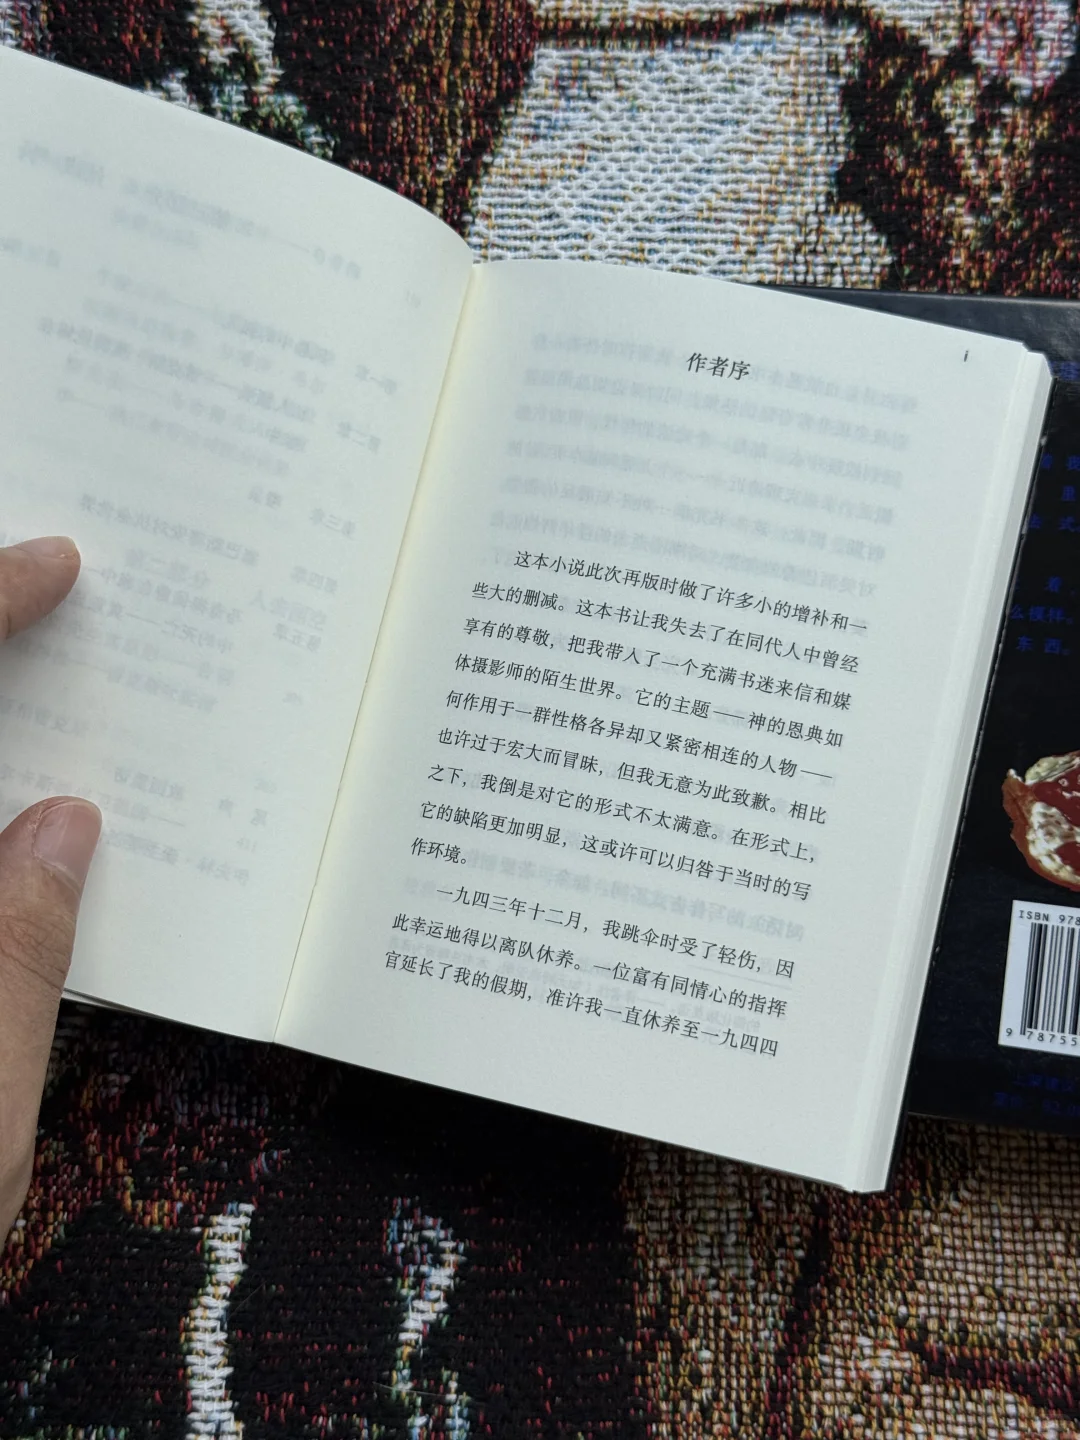 i
作者序
这本小说此次再版时做了许多小的增补和一
些大的删减。这本书让我失去了在同代人中曾经
享有的尊敬，把我带入了一个充满书迷来信和媒
体摄影师的陌生世界。它的主题——神的恩典如
何作用于一群性格各异却又紧密相连的人物——
也许过于宏大而冒昧，但我无意为此致歉。相比
之下，我倒是对它的形式不太满意。在形式上，
它的缺陷更加明显，这或许可以归咎于当时的写
作环境。
一九四三年十二月，我跳伞时受了轻伤，因
此幸运地得以离队休养。一位富有同情心的指挥
官延长了我的假期，准许我一直休养至一九四四
着，
么模样。
东西。
ISBN 978
9 78755